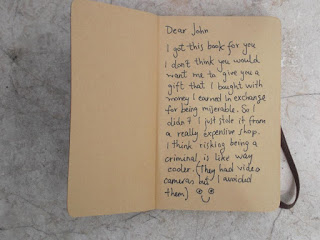 Dear John
I got this book for you
I don't think you would
want me to give you a
gift that I bought with
money I earned in exchange
for being miserable. So I
didn't I just stole it from
a really expensive shop.
I think risking being a
criminal is like way
cooler. (They had video
cameras but I avoided
them)